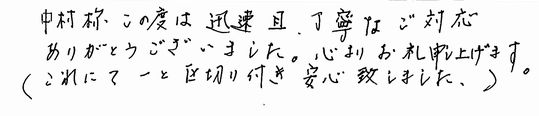 中村様、この度は迅速且、丁寧なご対応
ありがとうございました。心よりお礼申し上げます。
(これにて一と区切り付き安心致しました、)